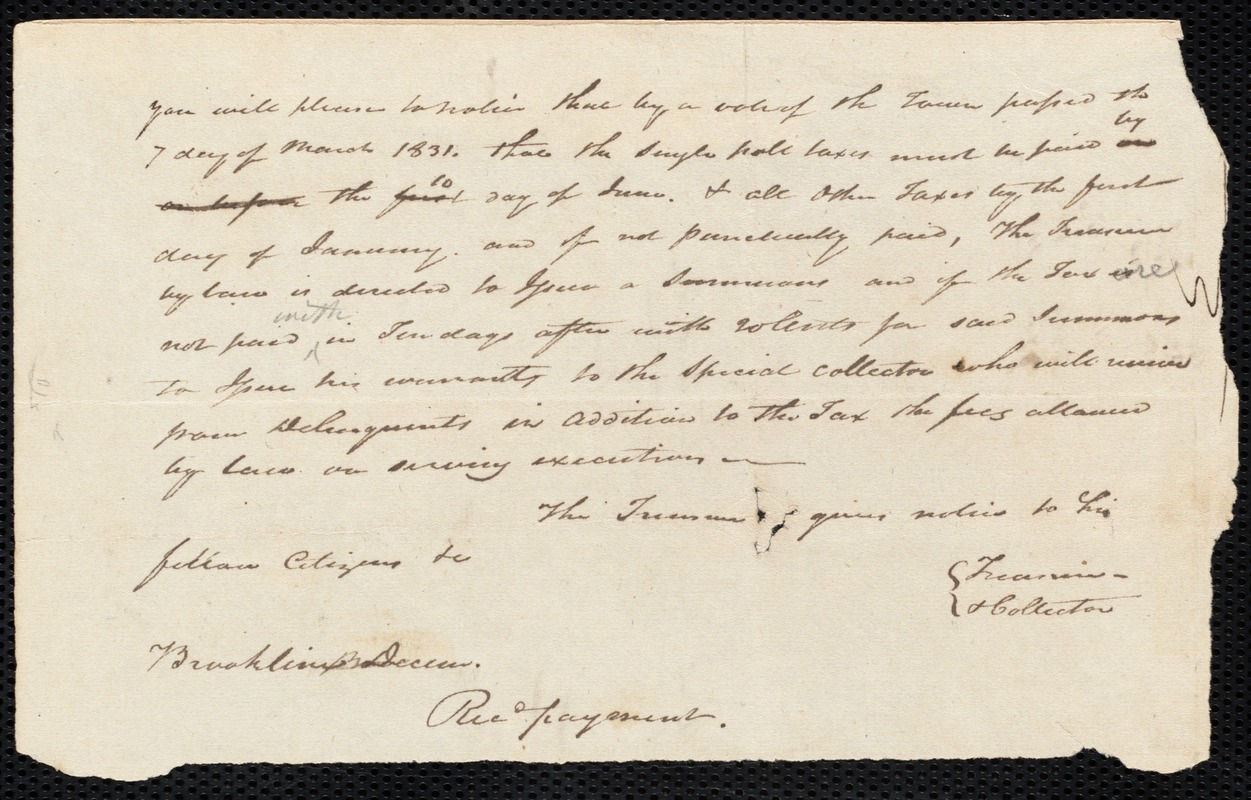 you will please to notice that by a vote of the Town passed the
7 day of March 1831. that the Single poll taxes must be paid on by
or before the first 10 day of June. & all Other Taxes by the first
day of January. and if not Punctually paid, The Treasurer
by law is directed to Issue a Summons and if the Tax is are
not paid with in Ten days after with 20 Cents for said Summons
to Issue his warrants to the Special Collector who will receive
from Delinquents in addition to the Tax the fees allowed
by law on serving executions
The Treasurer gives notice to his
fellow Citizens &c
Treasurer
& Collector
Brookline Decem.
Recd payment.